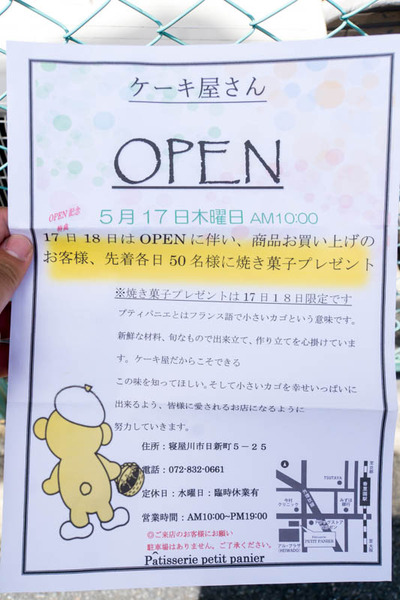 ケーキ屋さん
OPEN
OPEN記念
5月17日木曜日 AM10:00
17日18日はOPENに伴い、商品お買い上げの
お客様、先着各日50名様に焼き菓子プレゼント
※焼き菓子プレゼントは17日18日限定です
プティパニエとはフランス語で小さいカゴという意味です。
新鮮な材料、旬なもので出来立て、作り立てを心掛けていま
す。ケーキ屋だからこそできる
この味を知ってほしい。そして小さいカゴを幸せいっぱいに
出来るよう、皆様に愛されるお店になるように
努力していきます。
住所：寝屋川市日新町5－25
電話：072-832-0661
定休日：水曜日：臨時休業有
営業時間：AM10:00~PM19:00
◎ご来店のお客様にお願い
駐車場はありません、ご了承ください。
Pâtisserie petit panier
TSUTAYA
香里園駅
PETIT PANIER
HEIWADO